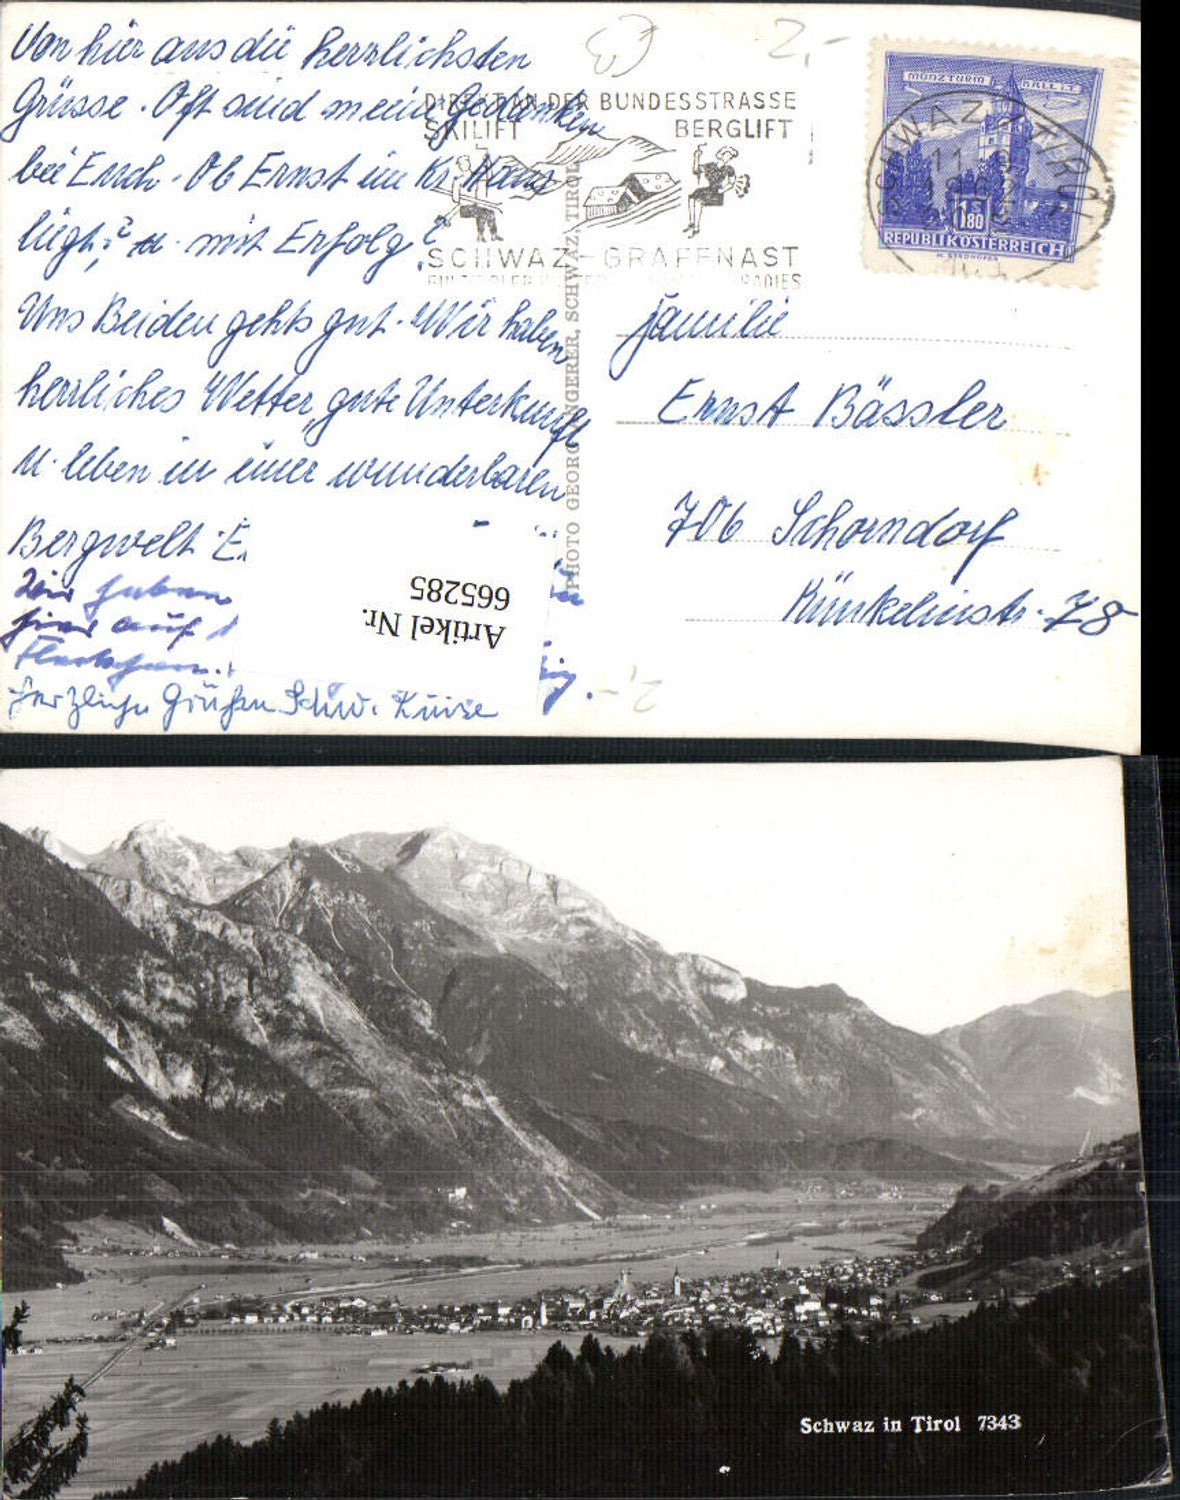 Von hier aus die herrlichsten
Grüsse. Oft sind meine Gedanken
bei Euch. Ob Ernst im Kr. Haus
liegt? u. mit Erfolg?
Uns Beiden gehts gut. Wir haben
herrliches Wetter, gute Unterkunft
u. leben in einer wunderbaren
Bergwelt. E.
Wir haben
hier auf
herzliche Grüßen Schw. Luise
2,-
DIREKT AN DER BUNDESSTRASSE
SKILIFT BERGLIFT
SCHWAZ - GRAFENAST
MÜNZTURM HALL I.T.
1.80
REPUBLIK ÖSTERREICH
SCHWAZ TIROL
PHOTO GEORG ANGERER, SCHWAZ, TIROL
Familie
Ernst Bässler
706 Schorndorf
Künkelinstr. 78
Artikel Nr.
665285
2,-
Schwaz in Tirol 7343